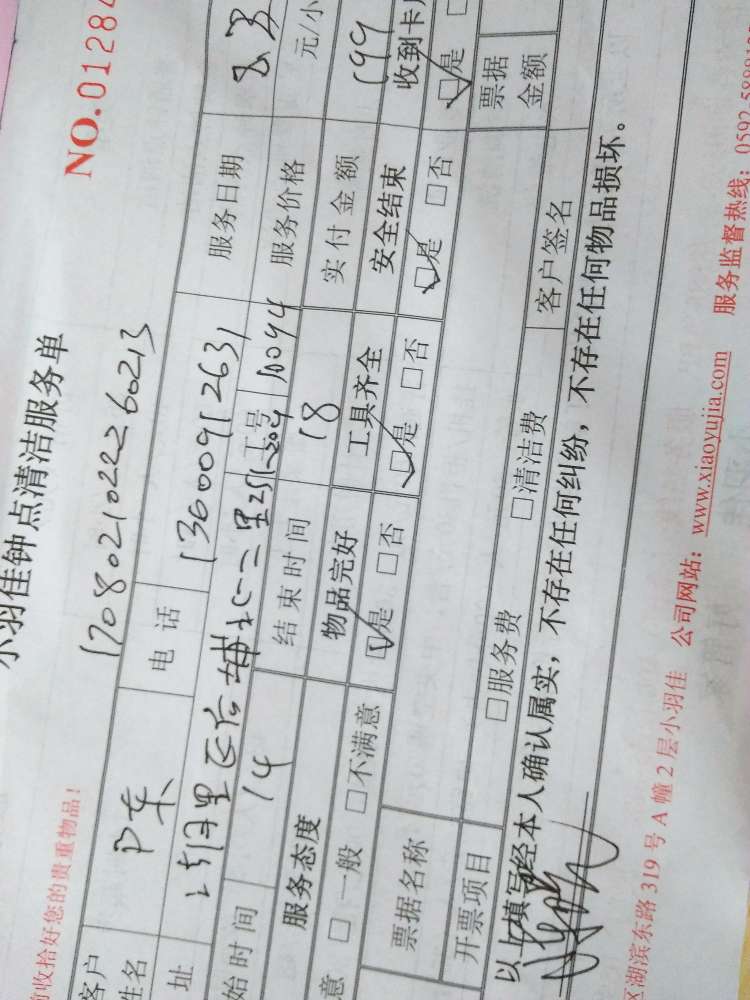 小羽佳钟点清洁服务单
NO.01284
收拾好您的贵重物品!
17080210222260213
客户
姓名
电话
13600912631
服务日期
址
工号
10094
服务价格
元/小
始时间
14
结束时间
18
实付金额
199
服务态度
物品完好
工具齐全
安全结束
收到卡
意 □一般 □不满意
☑是 □否
☑是 □否
☑是 □否
☑是
票据名称
票据
金额
开票项目
□服务费
□清洁费
客户签名
以上填写经本人确认属实,不存在任何纠纷,不存在任何物品损坏。
区湖滨东路 319 号 A 幢 2 层小羽佳 公司网站:www.xiaoyujia.com 服务监督热线:0592-5